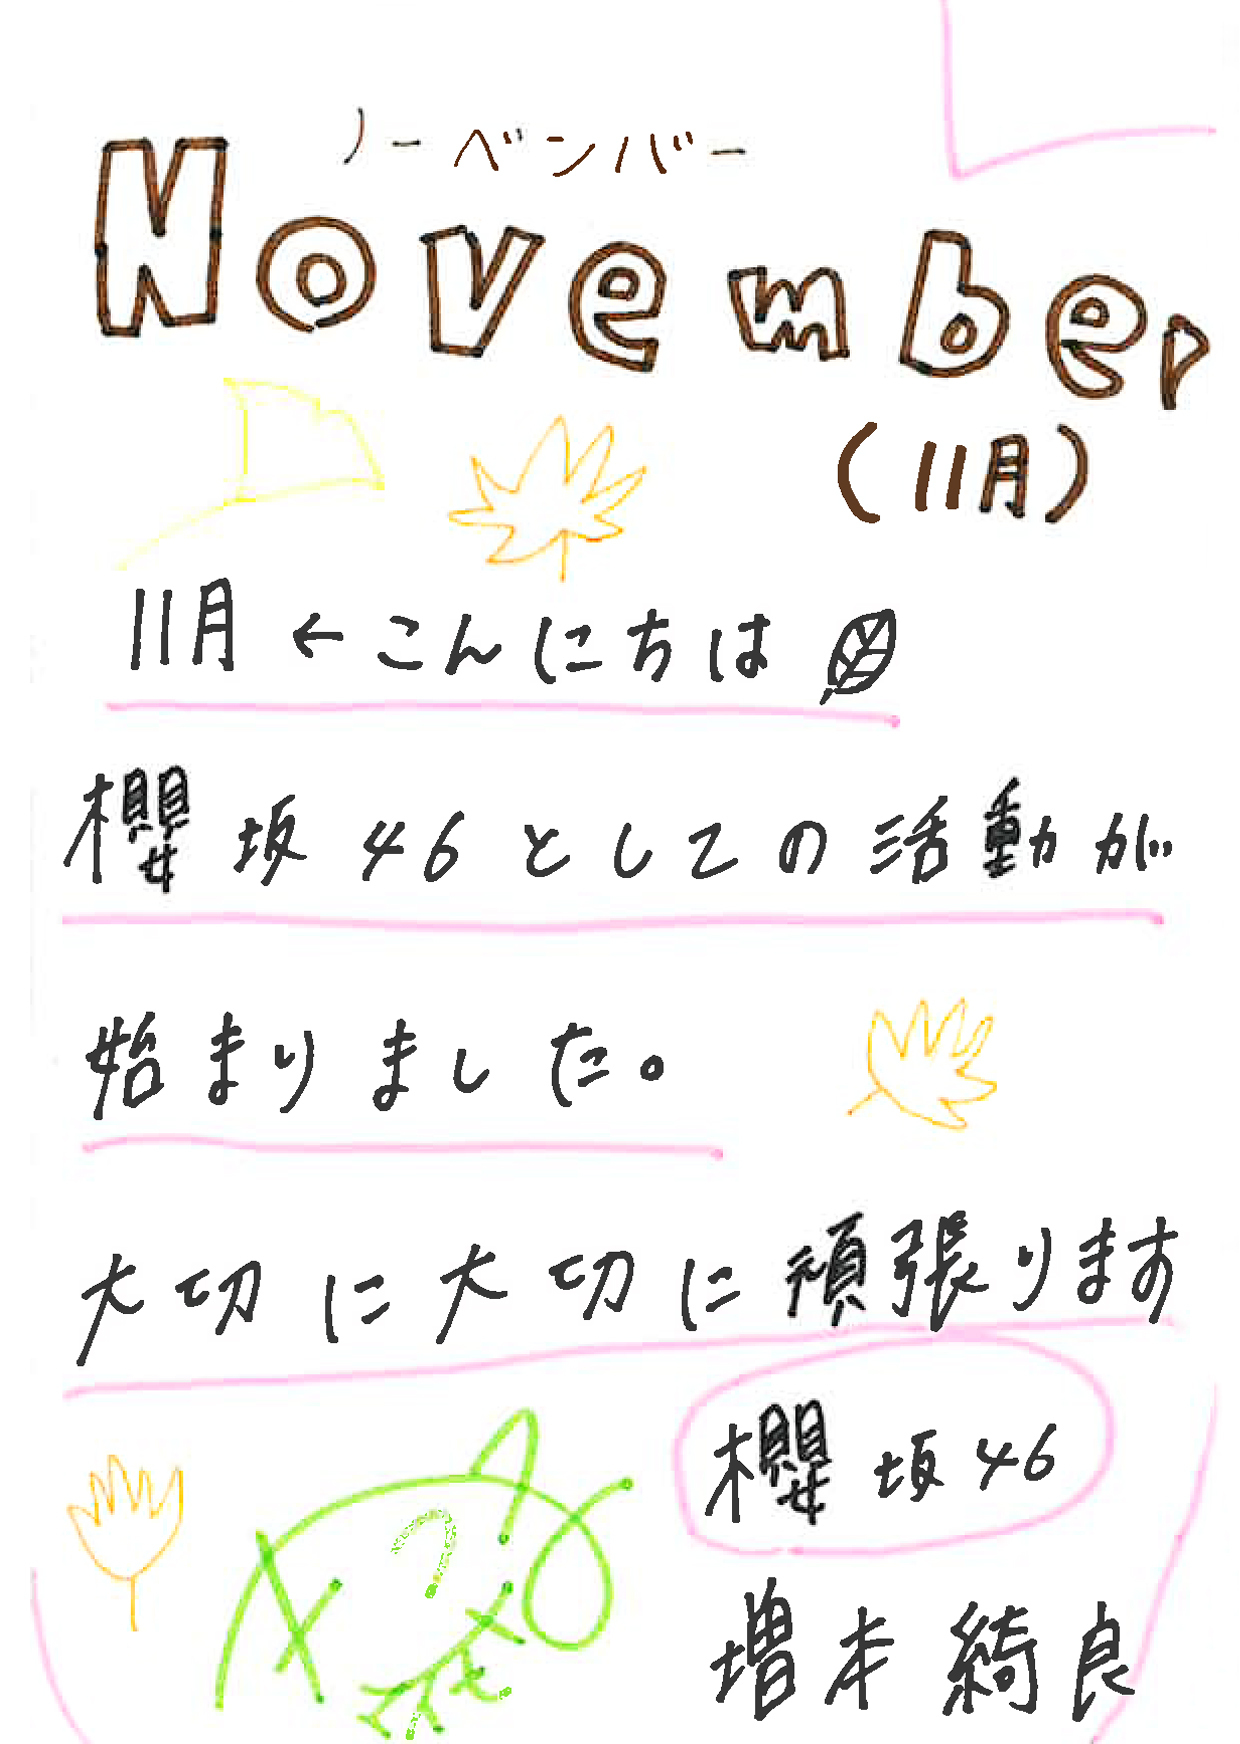 ノーベンバー
November
(11月)
11月←こんにちは
櫻坂46としての活動が
始まりました。
大切に大切に頑張ります
櫻坂46
増本綺良